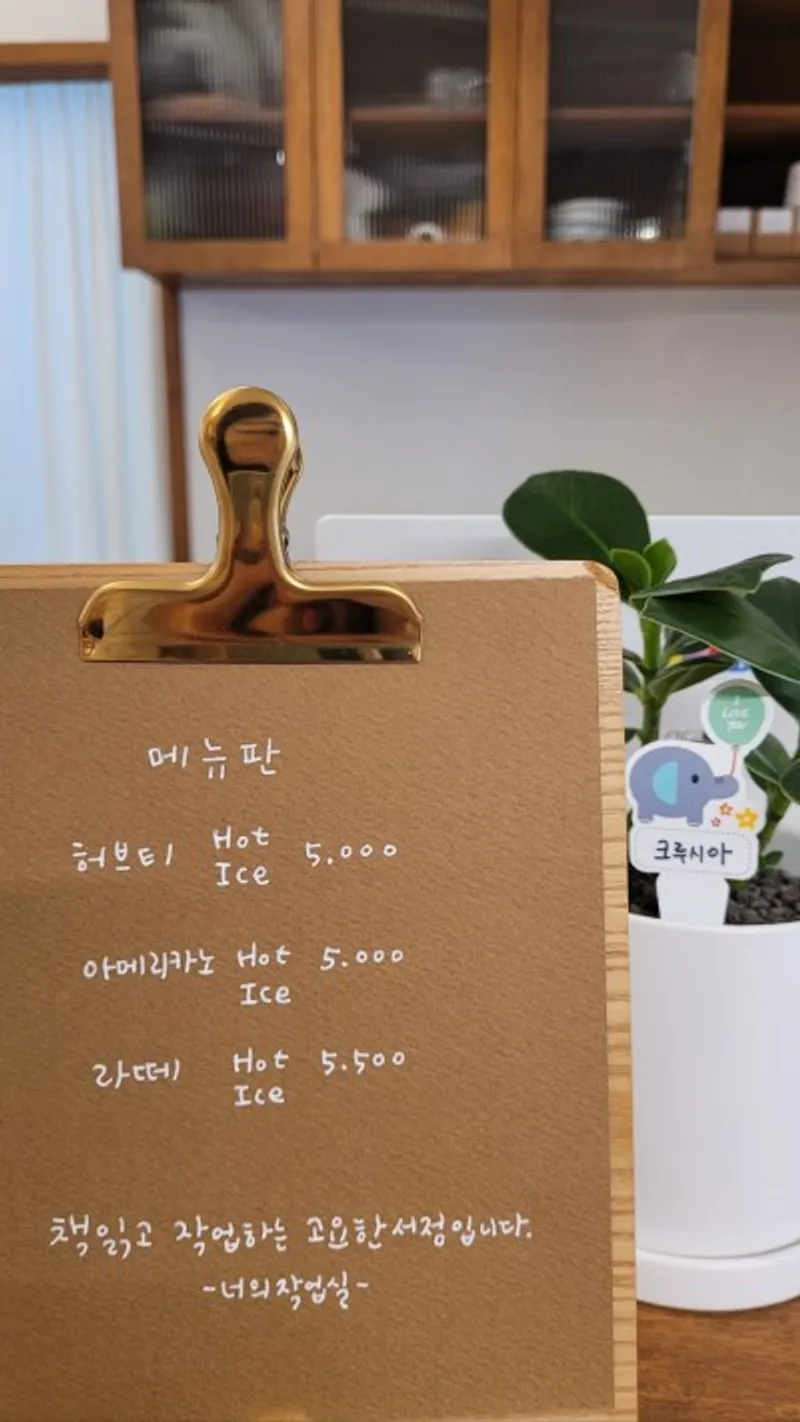 메뉴판
허브티 Hot 5.000
Ice
아메리카노 Hot 5.000
Ice
라떼 Hot 5.500
Ice
책읽고 작업하는 고요한서점입니다.
-너의작업실-
I
Love
You
크루시아